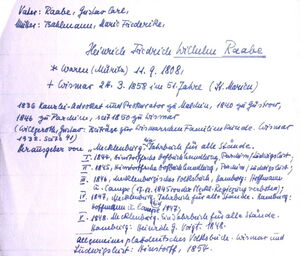 Vater: Raabe, Gustav Carl,
Mutter: Bahlmann, Maria Friederike,
Heinrich Friedrich Wilhelm Raabe
* Waren (Müritz) 11. 9. 1808,
+ Wismar 24. 3. 1858 im 51. Jahre (St. Marien)
1836 Kanzlei-Advokat und Prokurator zu Malchin, 1840 zu Güstrow,
1846 zu Parchim, seit 1850 zu Wismar
(Willgeroth, Gustav: Beiträge zur Wismarschen Familienkunde. Wismar
1932. Seite 91)
Herausgeber von "Mecklenburg. Jahrbuch für alle Stände.
I. 1844, Hinstorffsche Hofbuchhandlung, Parchim, Ludwigslust.
II. 1845, Hinstorffsche Hofbuchhandlung, Parchim, Ludwigslust;
III. 1846, Mecklenburgisches Volksbuch. Hamburg: Hoffmann
u. Campe (1845 von der Meckl. Regierung verboten);
IV. 1847, Mecklenburg. Jahrbuch für alle Stände. Hamburg:
Hoffmann u. Campe 1847;
V. 1848. Mecklenburg. Ein Jahrbuch für alle Stände.
Hamburg: G. Voigt 1848.
Allgemeines plattdeutsches Volksbuch. Wismar und
Ludwigslust: Hinstorff, 1854.